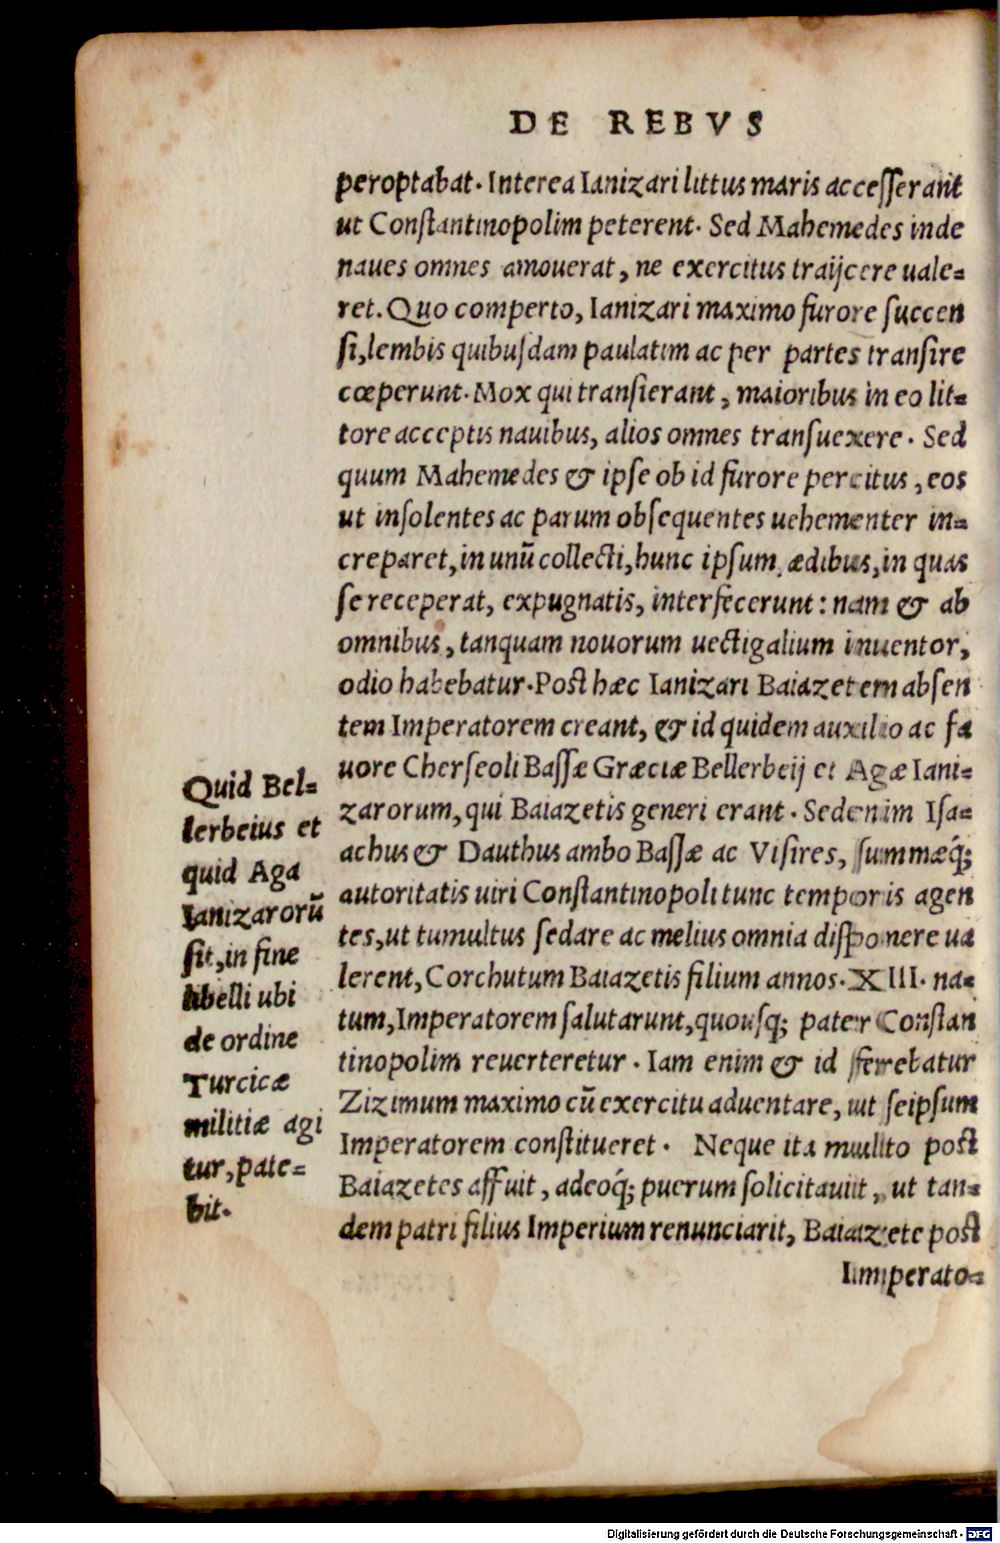 DE REBVS
peroptabat. Interea Ianizari littus maris accesserant
ut Constantinopolim peterent. Sed Mahemedes inde
naues omnes amouerat, ne exercitus traijcere uale=
ret. Quo comperto, Ianizari maximo furore succen
si, lembis quibusdam paulatim ac per partes transire
cœperunt. Mox qui transierant, maioribus in eo lit=
tore acceptis nauibus, alios omnes transuexere. Sed
quum Mahemedes & ipse ob id furore percitus, eos
ut insolentes ac parum obsequentes uehementer in=
creparet, in unū collecti, hunc ipsum, ædibus, in quas
se receperat, expugnatis, interfecerunt: nam & ab
omnibus, tanquam nouorum uectigalium inuentor,
odio habebatur. Post hæc Ianizari Baiazetem absen
tem Imperatorem creant, & id quidem auxilio ac fa
uore Cherseoli Bassæ Græciæ Bellerbeij et Agæ Iani=
zarorum, qui Baiazetis generi erant. Sed enim Isa=
achus & Dauthus ambo Bassæ ac Visires, summæq́;
autoritatis uiri Constantinopoli tunc temporis agen
tes, ut tumultus sedare ac melius omnia disponere ua
lerent, Corchutum Baiazetis filium annos. XIII. na=
tum, Imperatorem salutarunt, quousq; pater Constan
tinopolim reuerteretur. Iam enim & id ferebatur
Zizimum maximo cū exercitu aduentare, ut seipsum
Imperatorem constitueret. Neque ita multo post
Baiazetes affuit, adeoq́; puerum solicitauit, ut tan=
dem patri filius Imperium renunciarit, Baiazete post
Imperato=
Quid Bel=
lerbeius et
quid Aga
Ianizarorū
sit, in fine
libelli ubi
de ordine
Turcicæ
militiæ agi
tur, pate=
bit.
Digitalisierung gefördert durch die Deutsche Forschungsgemeinschaft - DFG